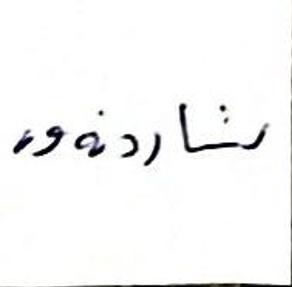 شاردنەوە